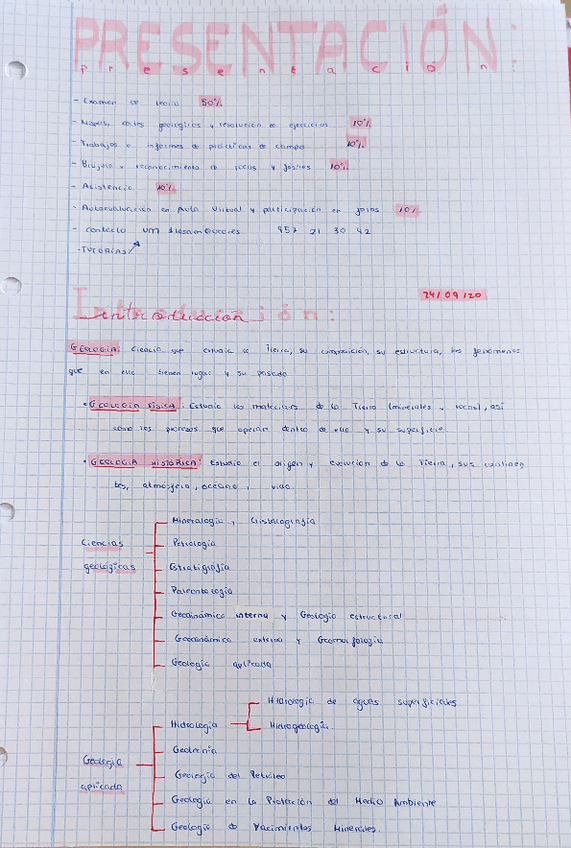 PRESENTACIÓN:
presentación:
- Examen de teoría 50%
- Mapas, cortes geológicos y resolución de ejercicios 10%
- Trabajos e informes de prácticas de campo 10%
- Brújula y reconocimiento de rocas y fósiles 10%
- Asistencia 10%
- Autoevaluación en Aula Virtual y participación en foros 10%
- contacto 957 21 30 42
-TUTORIAS
24/09/20
Introducción:
GEOLOGIA: Ciencia que estudia la Tierra, su composición, su estructura, los fenómenos
que en ella tienen lugar y su pasado
• GEOLOGIA FISICA: Estudia los materiales de la Tierra (minerales y rocas), así
como los procesos que operan dentro de ella y su superficie.
• GEOLOGIA HISTORICA: Estudia el origen y evolución de la Tierra, sus continen
tes, atmósfera, océano, vida.
Ciencias
geológicas
Mineralogía y Cristalografía
Petrología
Estratigrafía
Paleontología
Geodinámica interna y Geología estructural
Geodinámica externa y Geomorfología
Geología aplicada
Geología
aplicada
Hidrología
Hidrología de aguas superficiales
Hidrogeología.
Geotecnia
Geología del Petróleo
Geología en la Protección del Medio Ambiente
Geología de Yacimientos Minerales.